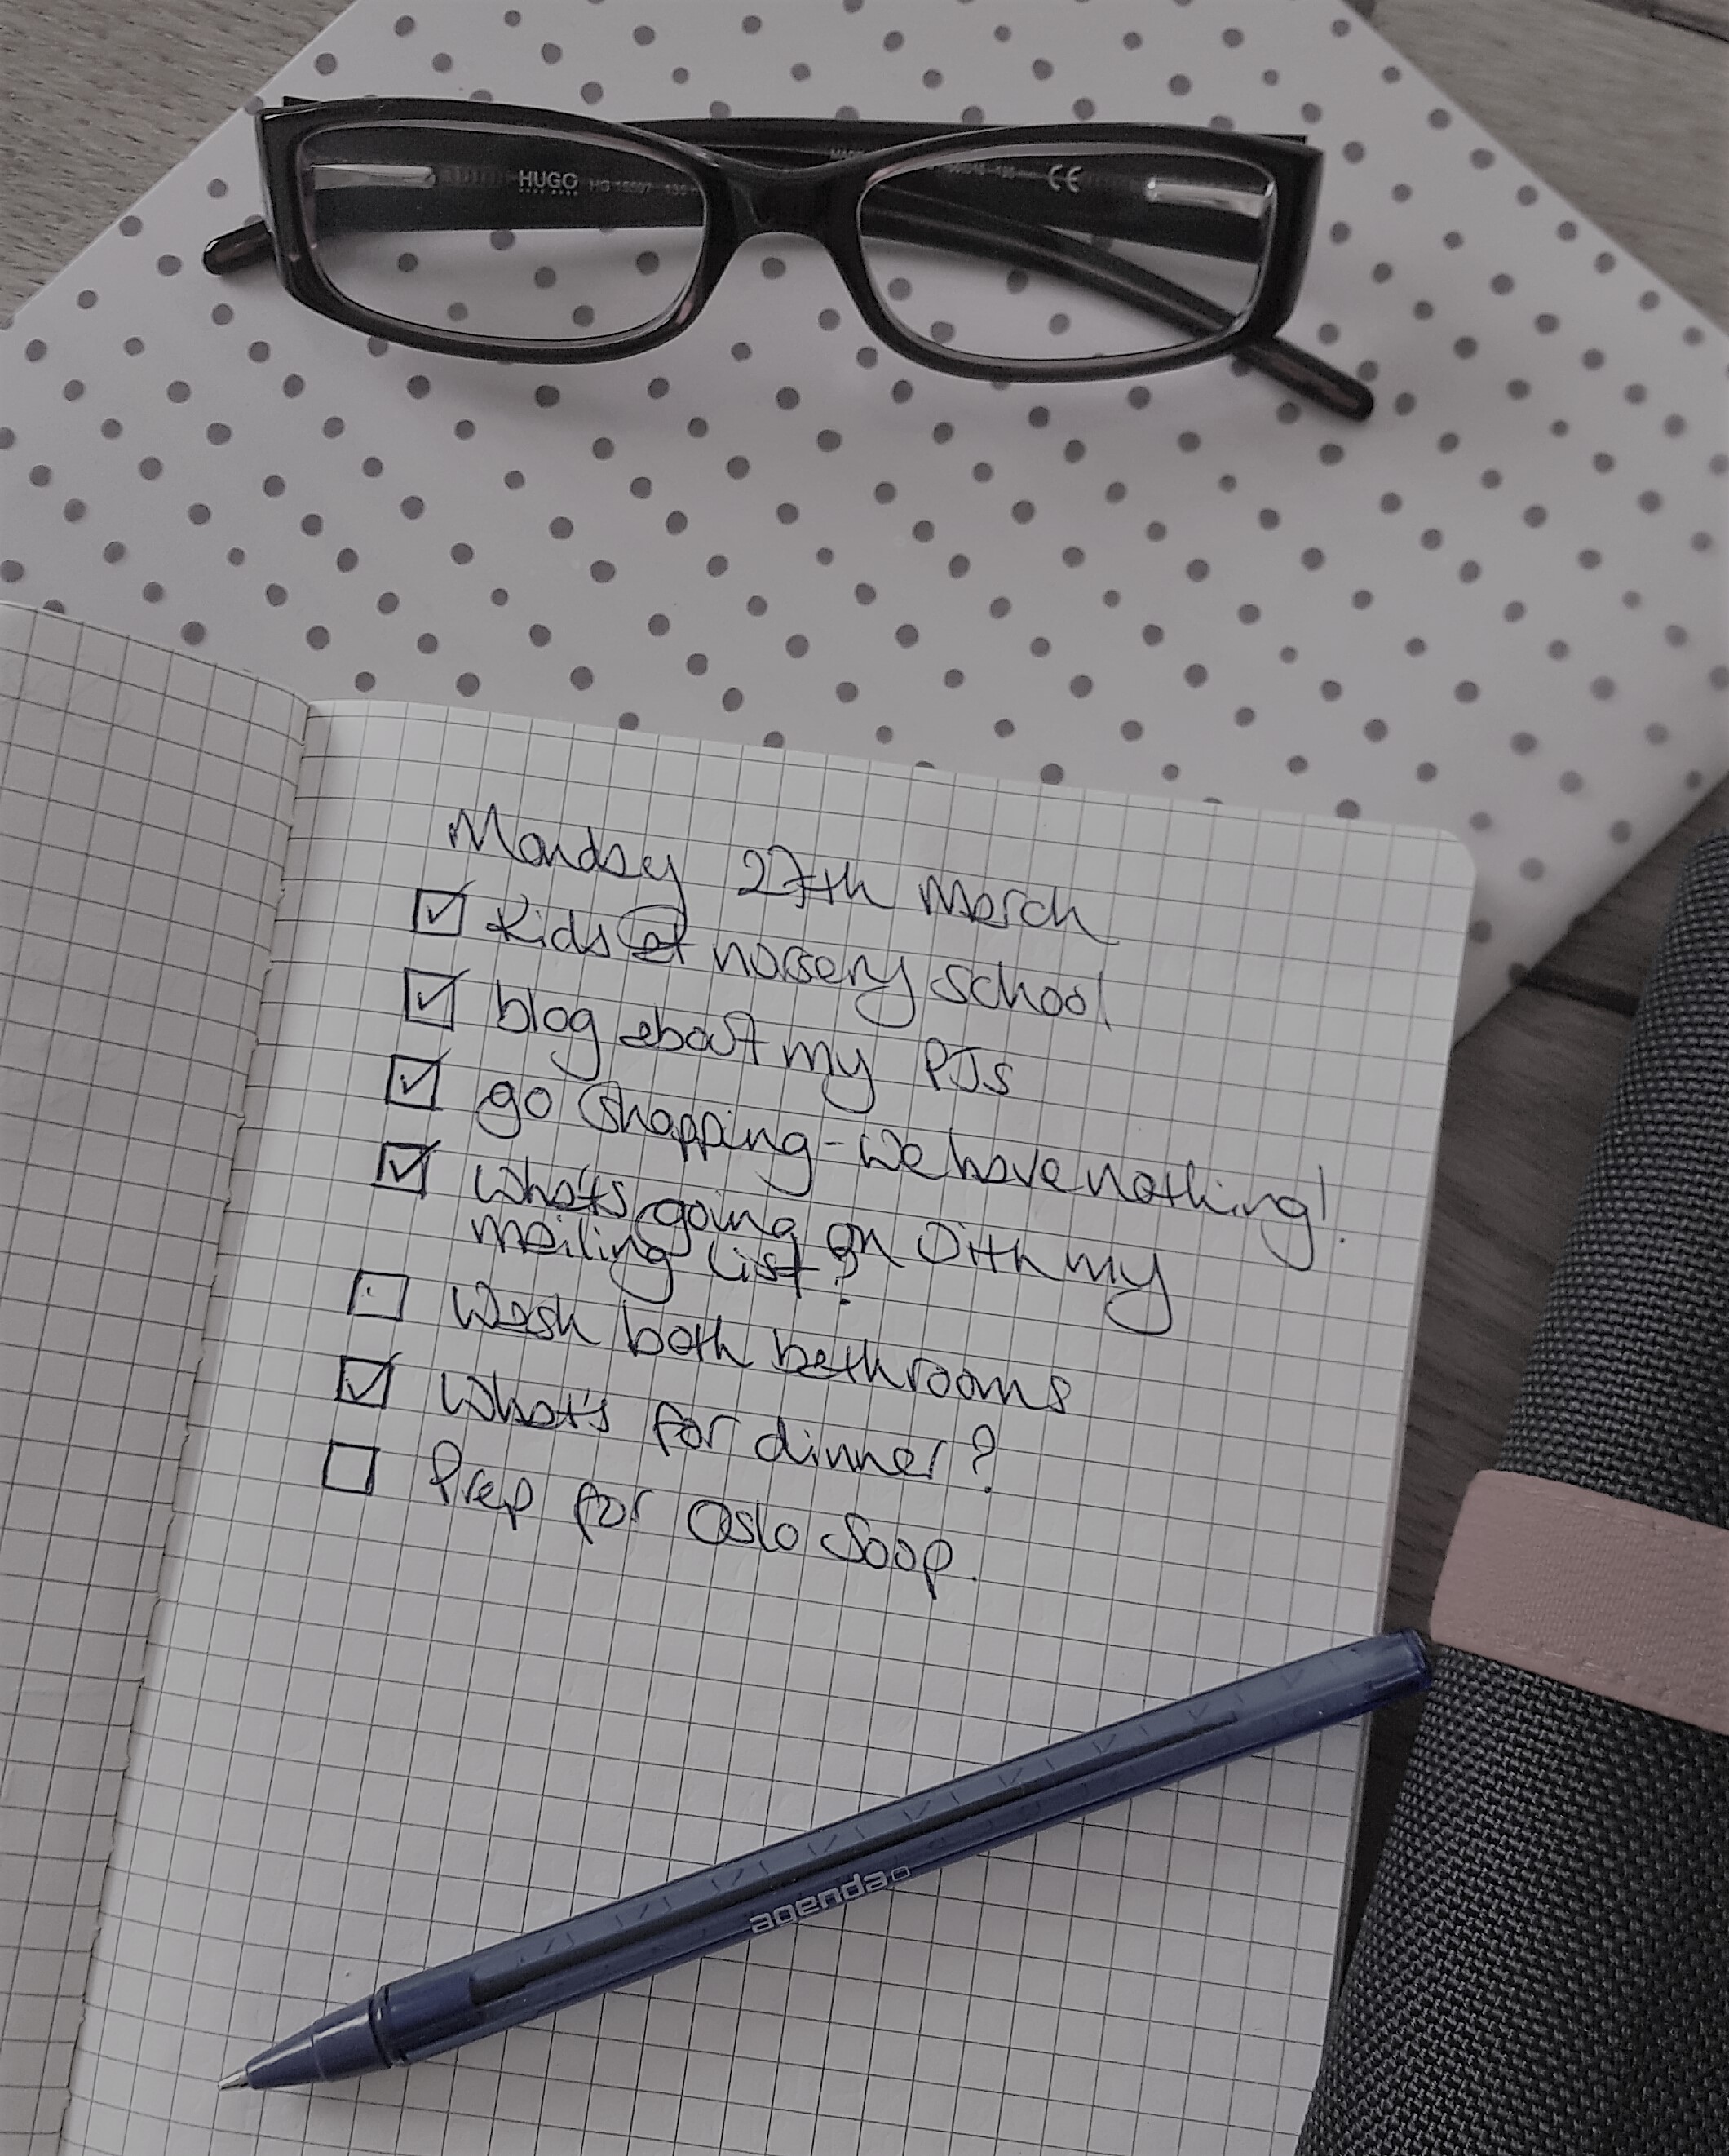 HUGO
HUGO BOSS
HG 15597 135
CE
Monday 27th March
Kids at nursery school
blog about my PJs
go shopping - we have nothing!
What's going on with my
mailing list?
Wash both bathrooms
What's for dinner?
Prep for Oslo Soop.
agenda